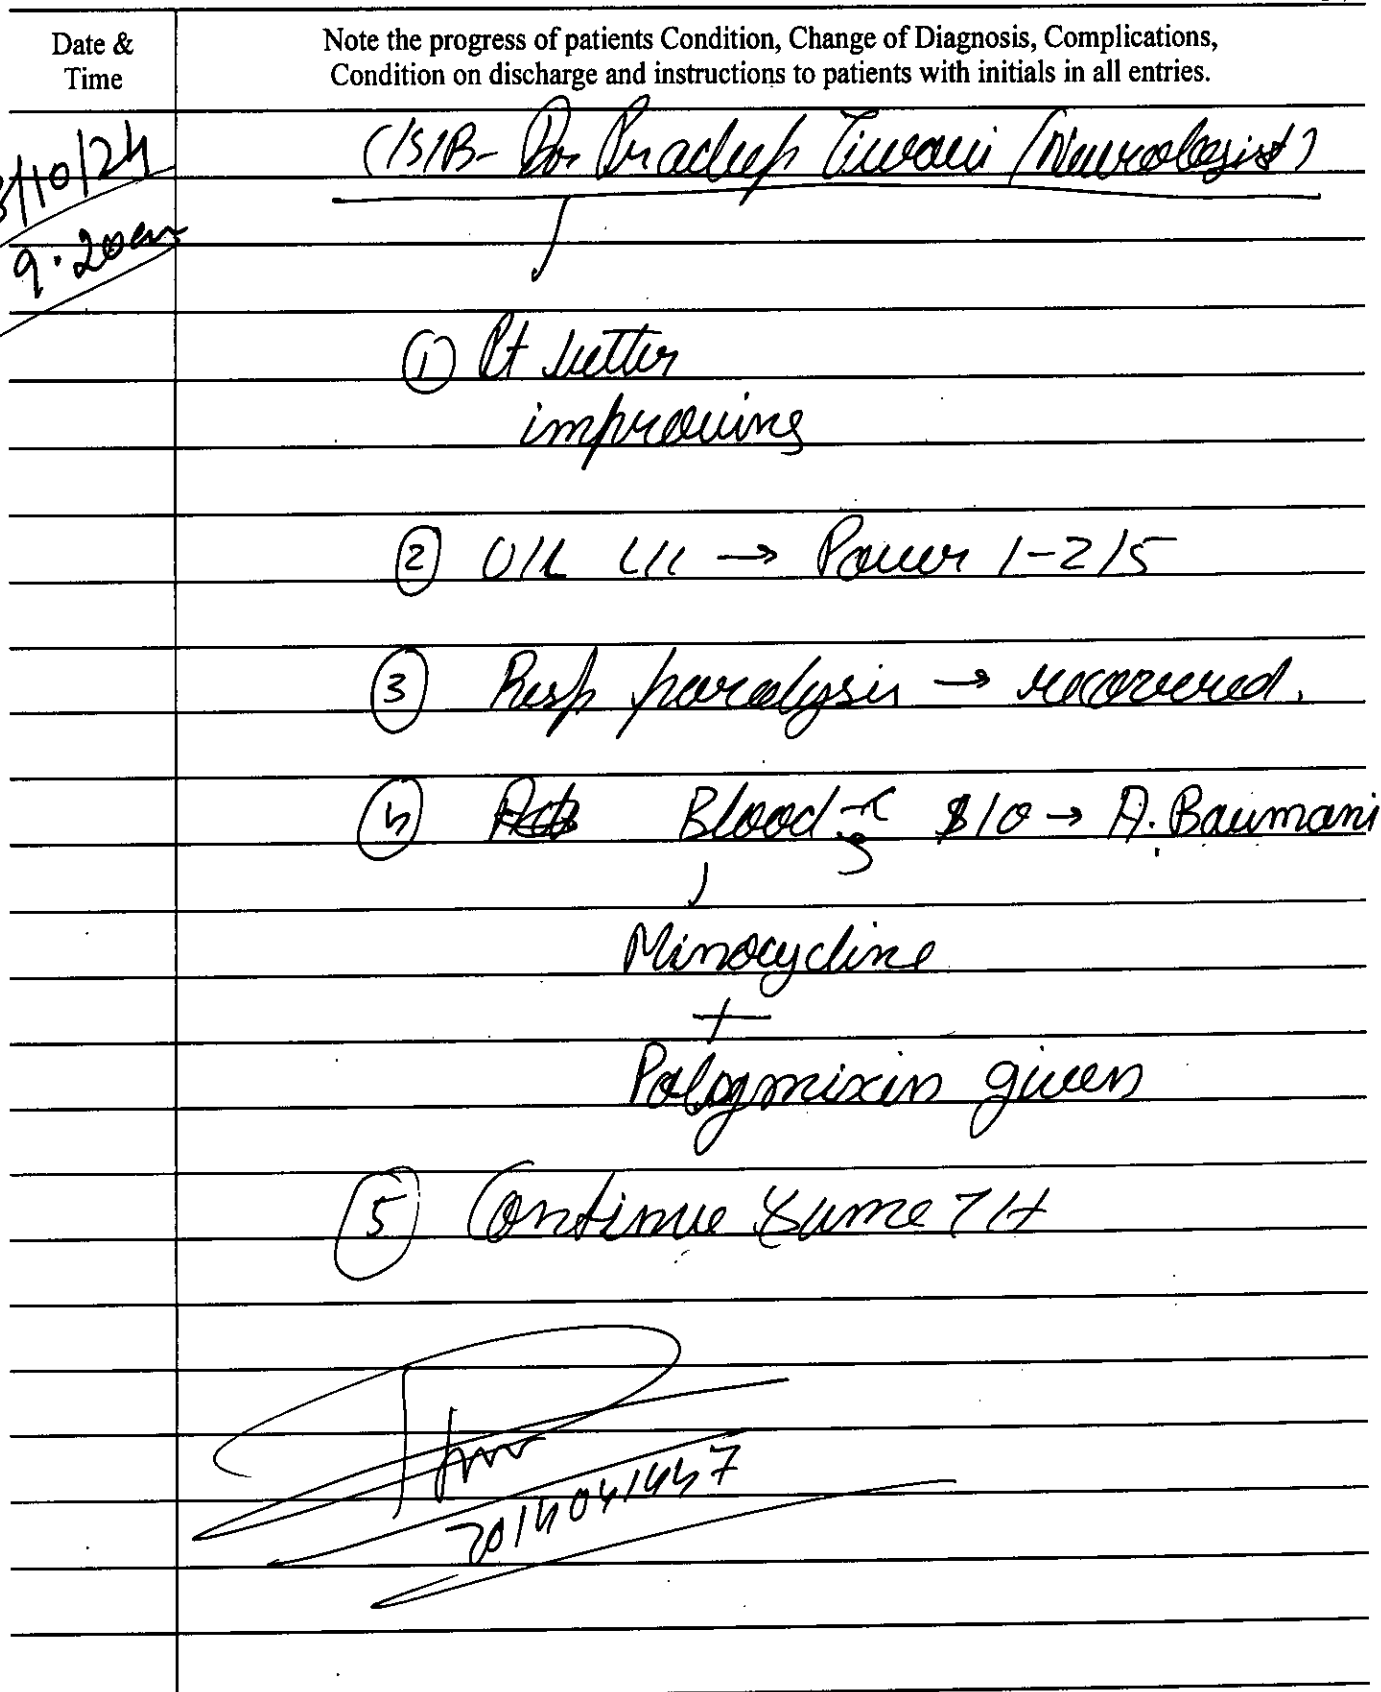 Date &
Time
Note the progress of patients Condition, Change of Diagnosis, Complications,
Condition on discharge and instructions to patients with initials in all entries.
/10/24
9.20am
C/S/B- Dr Pradeep Tiwari (Neurologist)
① Pt better
improving
② U/L L/L → Power 1-2/5
③ Resp paralysis → recovered.
④ Blood C/S S/O → A. Baumani
Minocycline
+
Polymixin given
⑤ Continue same T/t